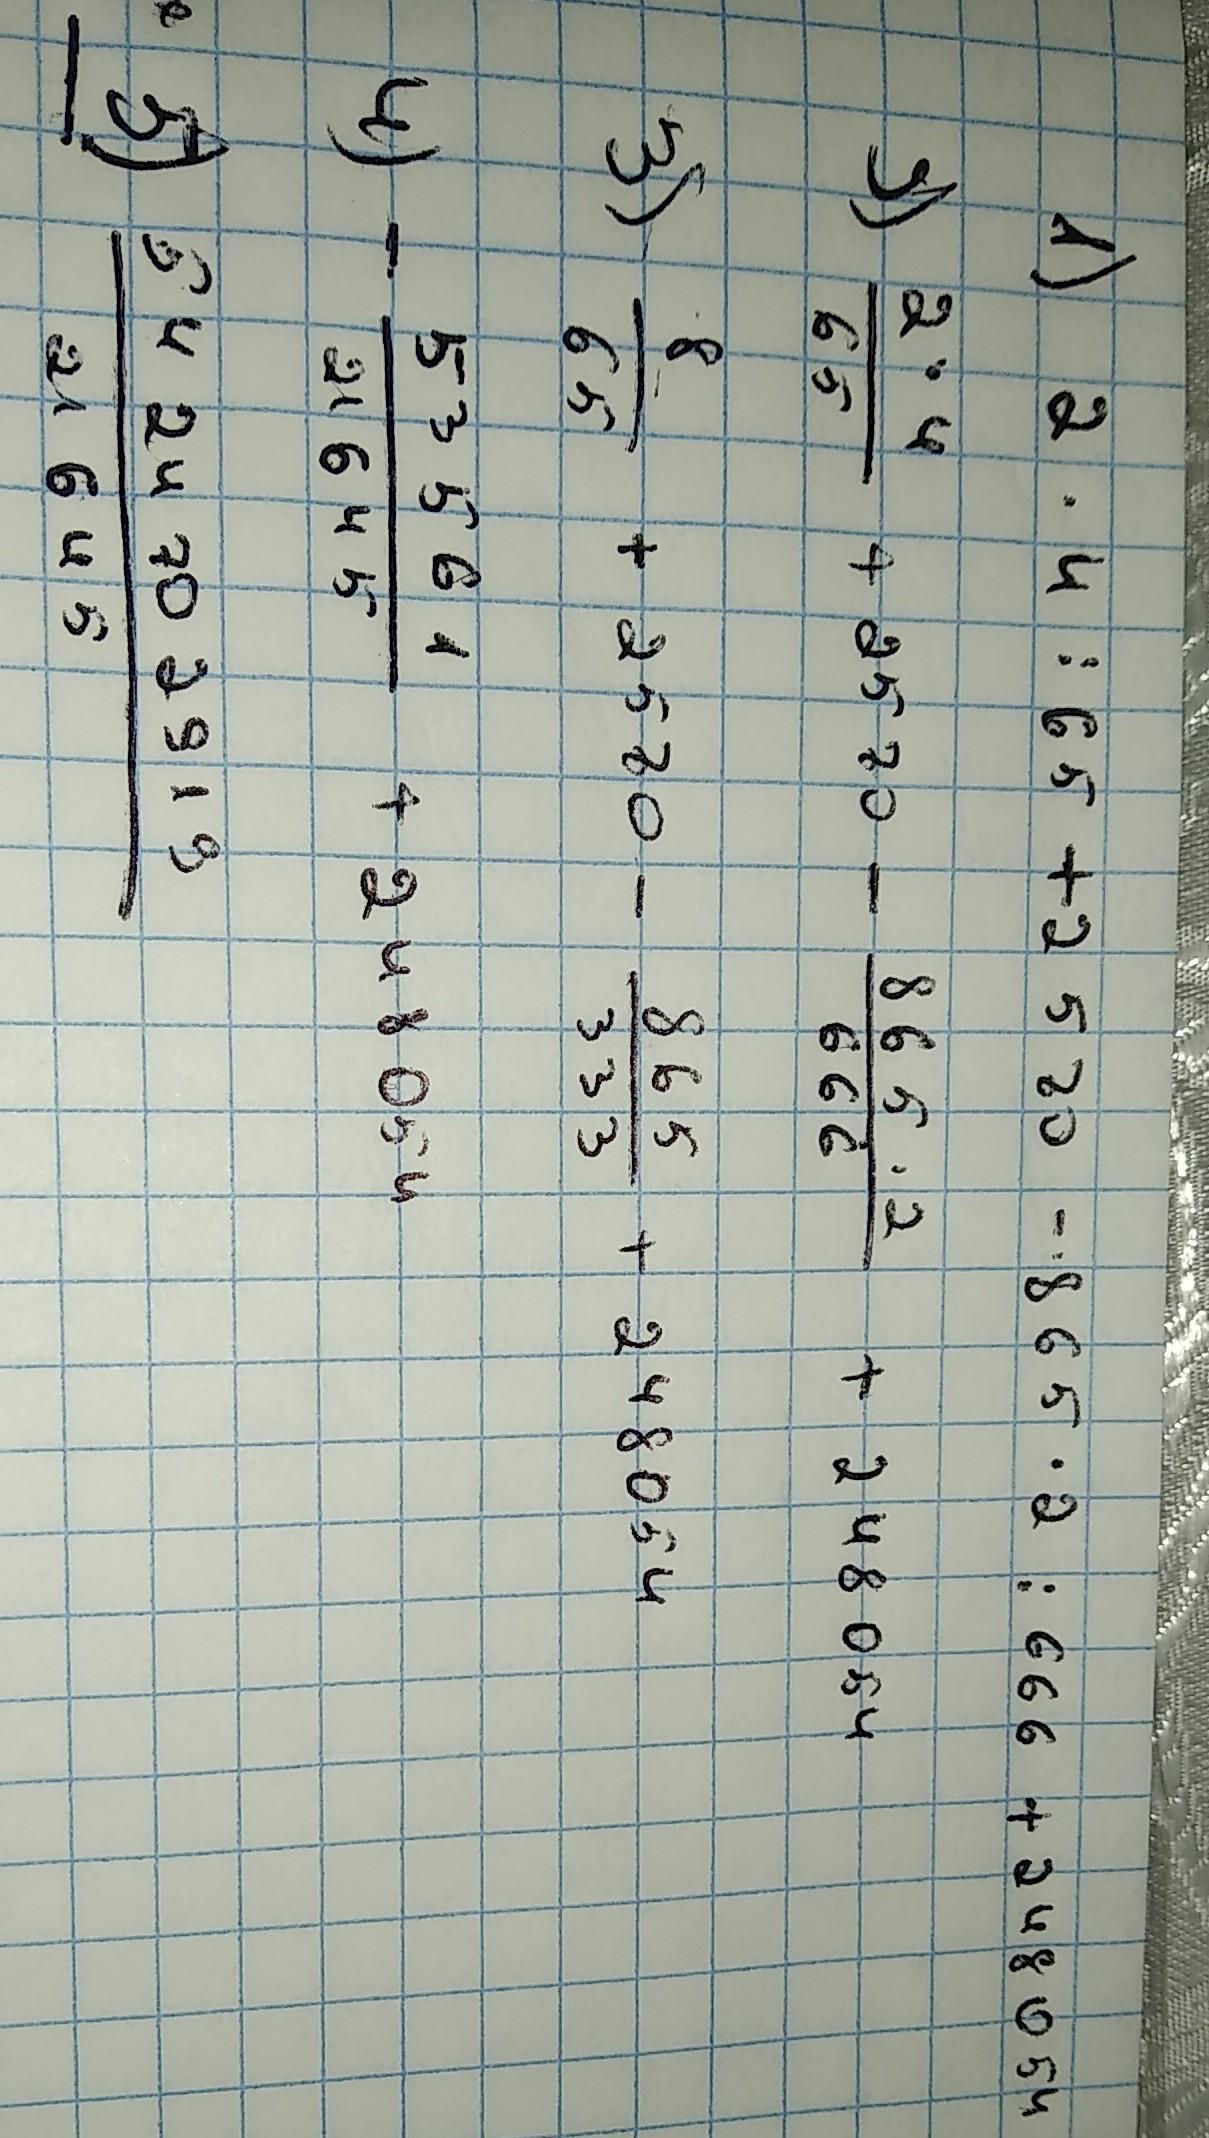 1) 2 · 4 : 65 + 2570 - 865 · 2 : 666 + 248054
2) 2 · 4
65
+ 2570 -
865 · 2
666
+ 248054
3) 8
65
+ 2570 -
865
333
+ 248054
4) -
53561
21645
+ 248054
5) 5424702919
21645